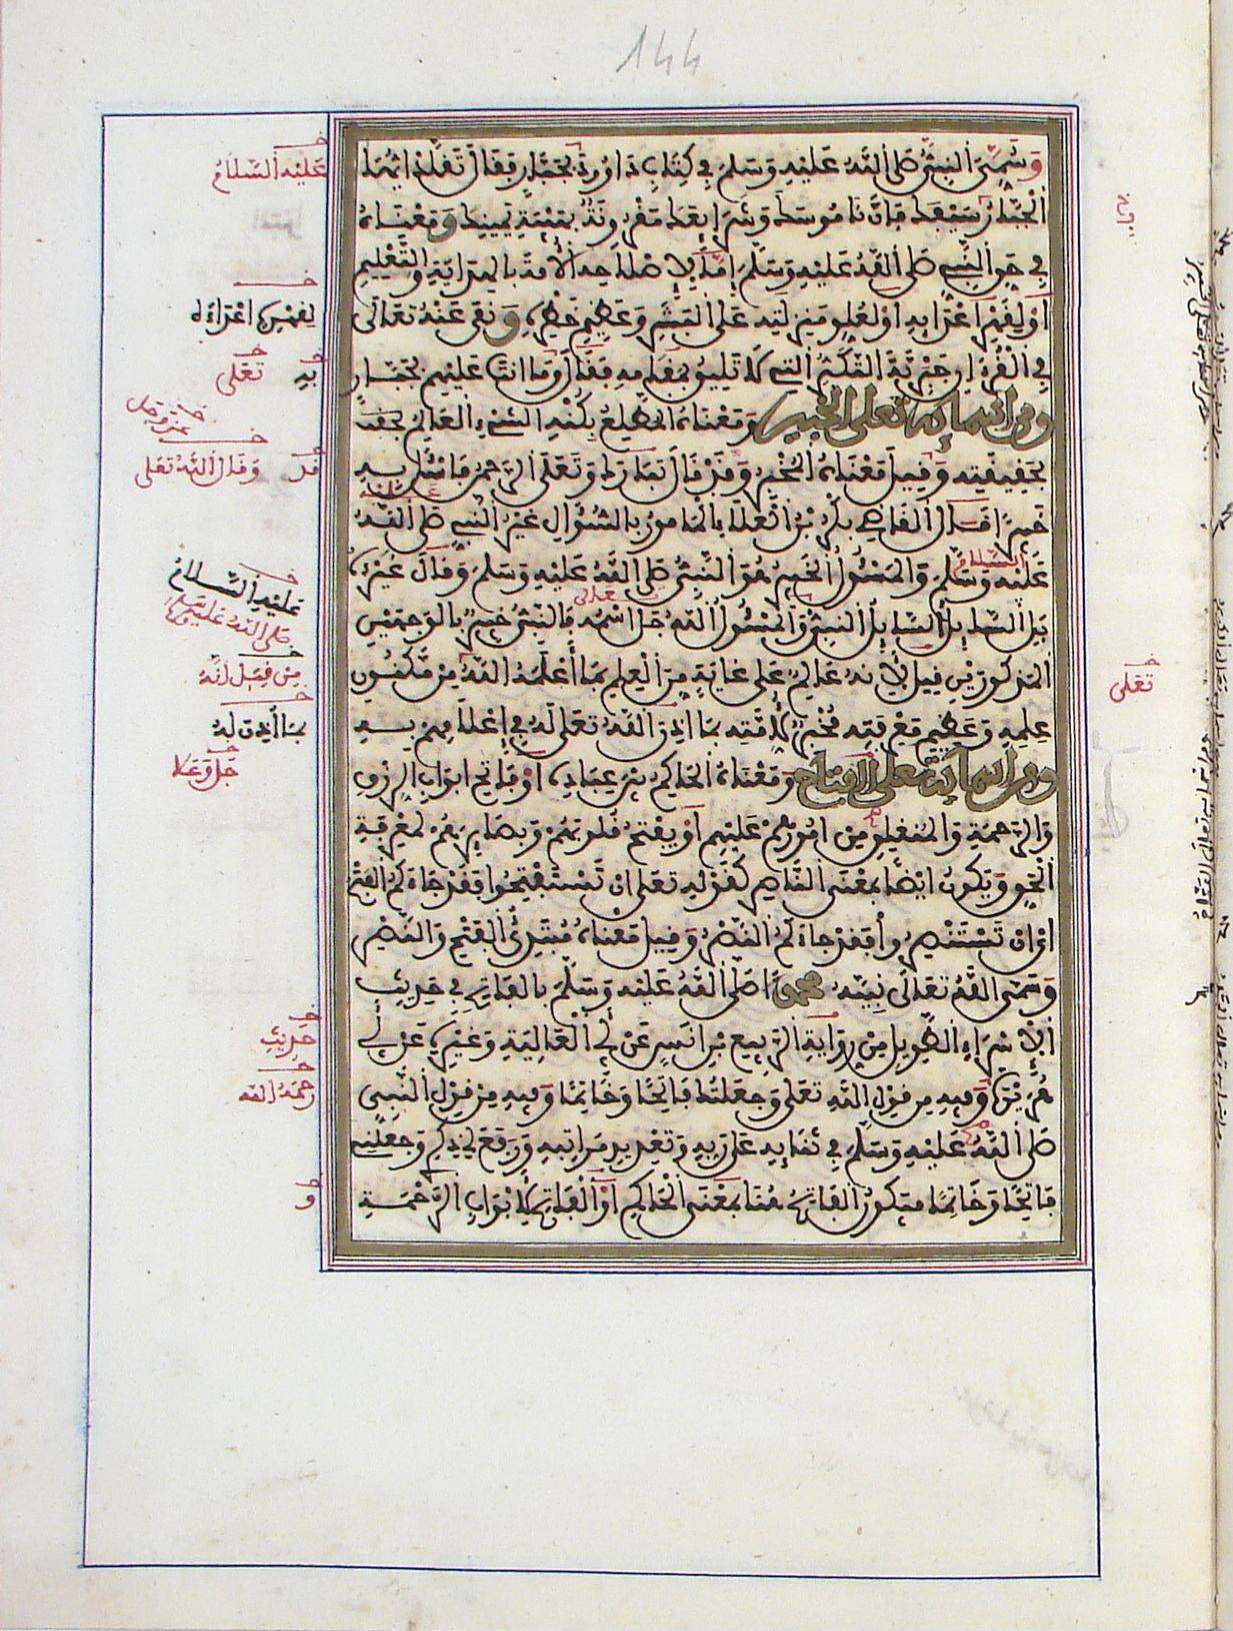 144
وَسُمِّيَ النَّبِيُّ صَلَّى اللَّهُ عَلَيْهِ وَسَلَّمَ فِي كِتَابِ دَاوُودَ بِجَبَّارٍ فَقَالَ تَقَلَّدْ أَيُّهَا
الْجَبَّارُ سَيْفَكَ فَإِنَّ نَامُوسَكَ وَشَرَائِعَكَ مَقْرُونَةٌ بِهَيْبَةِ يَمِينِكَ وَمَعْنَاهُ
فِي حَقِّ النَّبِيِّ صَلَّى اللَّهُ عَلَيْهِ وَسَلَّمَ إِمَّا لِإِصْلَاحِهِ الْأُمَّةَ بِالْهِدَايَةِ وَالتَّعْلِيمِ
أَوْ لِقَهْرِ أَعْدَائِهِ أَوْ لِعُلُوِّ مَنْزِلَتِهِ عَلَى الْبَشَرِ وَعَظِيمِ خَطَرِهِ وَنَفَى عَنْهُ تَعَالَى
فِي الْقُرْءَانِ جَبْرِيَّةَ التَّكَبُّرِ الَّتِي لَا تَلِيقُ بِهِ فَقَالَ وَمَا أَنْتَ عَلَيْهِمْ بِجَبَّارٍ
وَمِنْ أَسْمَائِهِ تَعَلَى الْخَبِيرُ وَمَعْنَاهُ الْمُطَّلِعُ بِكُنْهِ الشَّيْءِ الْعَالِمُ
بِحَقِيقَتِهِ وَقِيلَ مَعْنَاهُ الْمُخْبِرُ وَقَدْ قَالَ تَبَارَكَ وَتَعَلَى الرَّحْمَنُ فَاسْأَلْ بِهِ
خَبِيرًا قَالَ الْقَاضِي بَكْرُ بْنُ الْعَلَاءِ الْمَأْمُورُ بِالسُّؤَالِ غَيْرُ النَّبِيِّ صَلَّى اللَّهُ
عَلَيْهِ وَسَلَّمَ وَالْمَسْئُولُ الْخَبِيرُ هُوَ النَّبِيُّ صَلَّى اللَّهُ عَلَيْهِ وَسَلَّمَ وَقَالَ غَيْرُهُ
بَلِ السَّائِلُ النَّبِيُّ وَالْمَسْئُولُ اللَّهُ جَلَّ اسْمُهُ فَالنَّبِيُّ خَبِيرٌ بِالْوَجْهَيْنِ
الْمَذْكُورَيْنِ قِيلَ لِأَنَّهُ عَالِمٌ عَلَى غَايَةٍ مِنَ الْعِلْمِ بِمَا أَعْلَمَهُ اللَّهُ مِنْ مَكْنُونِ
عِلْمِهِ وَعَظِيمِ مَعْرِفَتِهِ مُخْبِرٌ لِأُمَّتِهِ بِمَا أَذِنَ اللَّهُ تَعَلَى لَهُ فِي إِعْلَامِهِمْ بِهِ
وَمِنْ أَسْمَائِهِ تَعَلَى الْفَتَّاحُ وَمَعْنَاهُ الْحَاكِمُ بَيْنَ عِبَادِهِ أَوْ فَاتِحُ أَبْوَابِ الرِّزْقِ
وَالرَّحْمَةِ وَالْمُنْغَلِقِ مِنْ أُمُورِهِمْ عَلَيْهِمْ أَوْ يَفْتَحُ قُلُوبَهُمْ وَبَصَائِرَهُمْ لِمَعْرِفَةِ
الْحَقِّ وَيَكُونُ أَيْضًا بِمَعْنَى النَّاصِرِ كَقَوْلِهِ تَعَلَى إِنْ تَسْتَفْتِحُوا فَقَدْ جَاءَكُمُ الْفَتْحُ
أَيْ إِنْ تَسْتَنْصِرُوا فَقَدْ جَاءَكُمُ النَّصْرُ وَقِيلَ مَعْنَاهُ مُبْتَدِئُ الْفَتْحِ وَالنَّصْرِ
وَسَمَّى اللَّهُ تَعَالَى نَبِيَّهُ مُحَمَّدًا صَلَّى اللَّهُ عَلَيْهِ وَسَلَّمَ بِالْفَاتِحِ فِي حَدِيثِ
الْإِسْرَاءِ الطَّوِيلِ مِنْ رِوَايَةِ الرَّبِيعِ بْنِ أَنَسٍ عَنْ أَبِي الْعَالِيَةِ وَغَيْرِهِ عَنْ أَبِي
هُرَيْرَةَ وَفِيهِ مِنْ قَوْلِ اللَّهِ تَعَلَى وَجَعَلْتُكَ فَاتِحًا وَخَاتِمًا وَفِيهِ مِنْ قَوْلِ النَّبِيِّ
صَلَّى اللَّهُ عَلَيْهِ وَسَلَّمَ فِي ثَنَائِهِ عَلَى رَبِّهِ وَتَعْدِيدِ مَرَاتِبِهِ وَرَفَعَ لِي ذِكْرِي وَجَعَلَنِي
فَاتِحًا وَخَاتِمًا فَيَكُونُ الْفَاتِحُ هُنَا بِمَعْنَى الْحَاكِمِ أَوِ الْفَاتِحِ لِأَبْوَابِ الرَّحْمَةِ
عَلَيْهِ السَّلَامُ
لِقَهْرِهِ أَعْدَاءَهُ
بِهِ تَعَلَى
عَزَّ وَجَلَّ
وَقَالَ اللَّهُ تَعَلَى
عَلَيْهِ السَّلَامُ
صَلَّى اللَّهُ عَلَيْهِ وَسَلَّمَ
مِنْ قِبَلِ أَنَّهُ
بِمَا أُذِنَ لَهُ
جَلَّ وَعَلَا
حَدِيثِ
رَحِمَهُ اللَّهُ
تَعَلَى